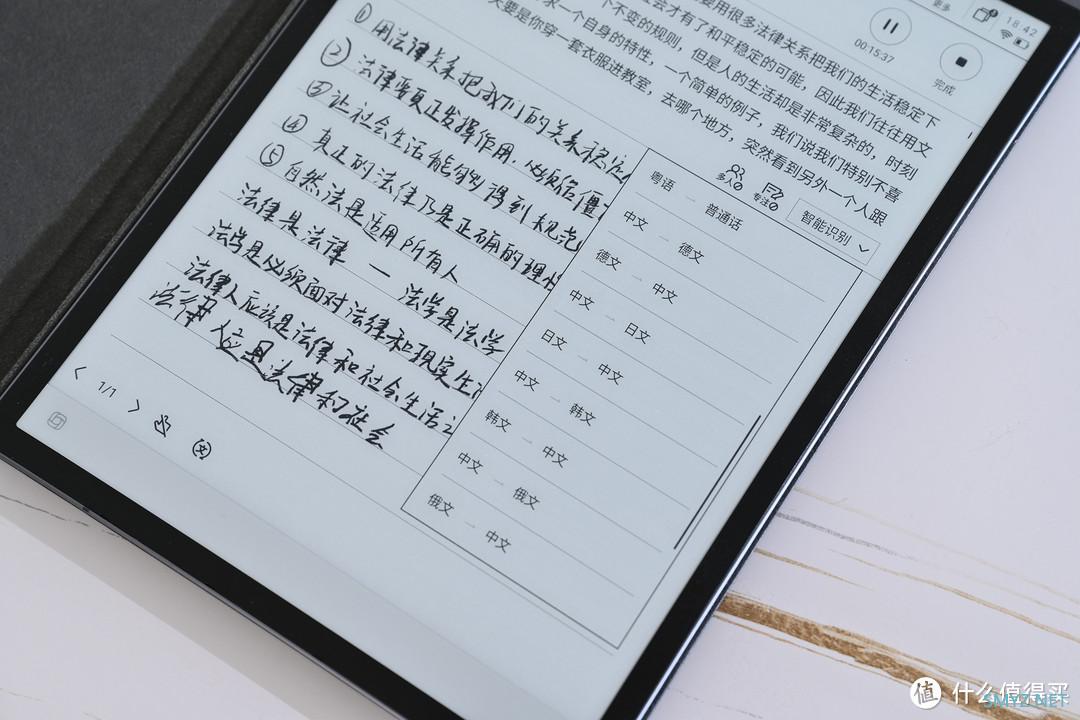 更多
18:42
00:15:37
完成
要用很多法律关系把我们的生活稳定下
会才有了和平稳定的可能，因此我们往往用文
个不变的规则，但是人的生活却是非常复杂的，时刻
求一个自身的特性，一个简单的例子，我们说我们特别不喜
大要是你穿一套衣服进教室，去哪个地方，突然看到另外一个人跟
多人
专注
智能识别
① 用法律关系把我们的关系稳定
② 法律要真正发挥作用，必须信仰
③ 让社会生活能够得到规范
④ 真正的法律乃是正确的理性
⑤ 自然法是适用所有人
法律是法律 — 法学是法学
法学是必须面对法律和现实生
法律人应该是法律和社会生活
法律人应是法律和社会
粤语 — 普通话
中文 — 德文
德文 — 中文
中文 — 日文
日文 — 中文
中文 — 韩文
韩文 — 中文
中文 — 俄文
俄文 — 中文
1/1
值 什么值得买
SMYZ.NET